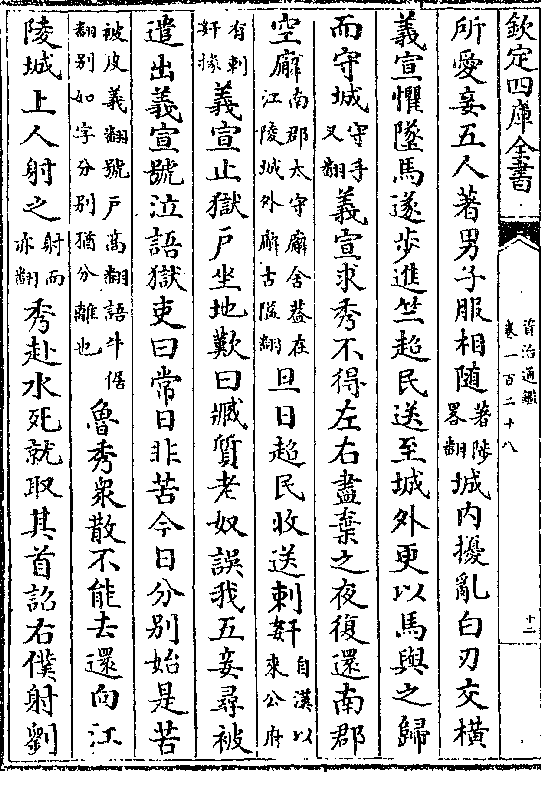 欽定四庫全書
資治通鑑
卷一百二十八
十二
所愛妾五人著男子服相隨著陟畧翻城内擾亂白刃交横
義宣懼墜馬遂步進竺超民送至城外更以馬與之歸
而守城守手又翻義宣求秀不得左右盡棄之夜復還南郡
空廨南郡太守廨舍葢在江陵城外廨古隘翻旦日超民收送刺姧自漢以來公府
有刺姧掾義宣止獄戸坐地歎曰臧質老奴誤我五妾尋被
遣出義宣號泣語獄吏曰常日非苦今日分别始是苦
被皮義翻號戸髙翻語牛倨翻别如字分别猶分離也魯秀衆散不能去還向江
陵城上人射之射而亦翻秀赴水死就取其首詔右僕射劉